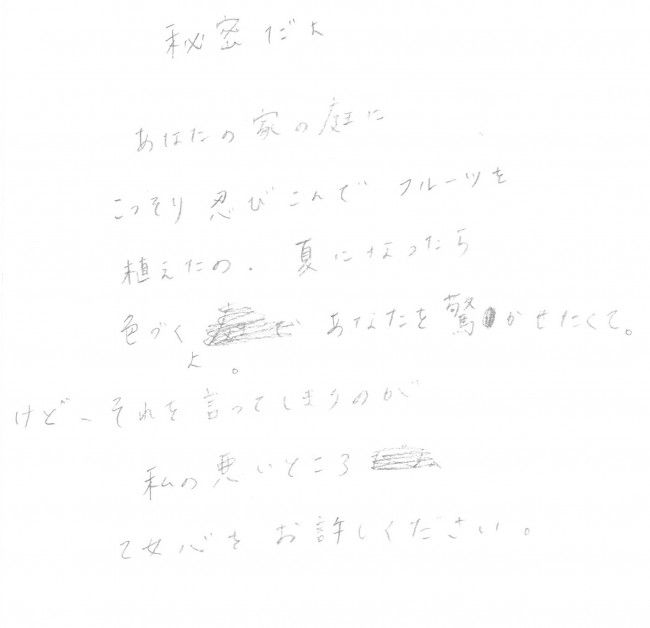 秘密だよ
あなたの家の庭に
こっそり忍びこんでフルーツを
植えたの. 夏になったら
色づく あなたを驚かせたくて。
よ。
けど、それを言ってしまうのが
私の悪いところ
乙女心をお許しください。